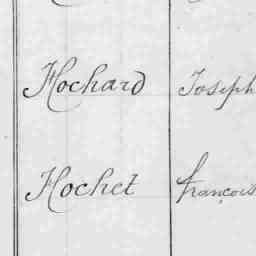 Hochard Joseph
Hochet françois